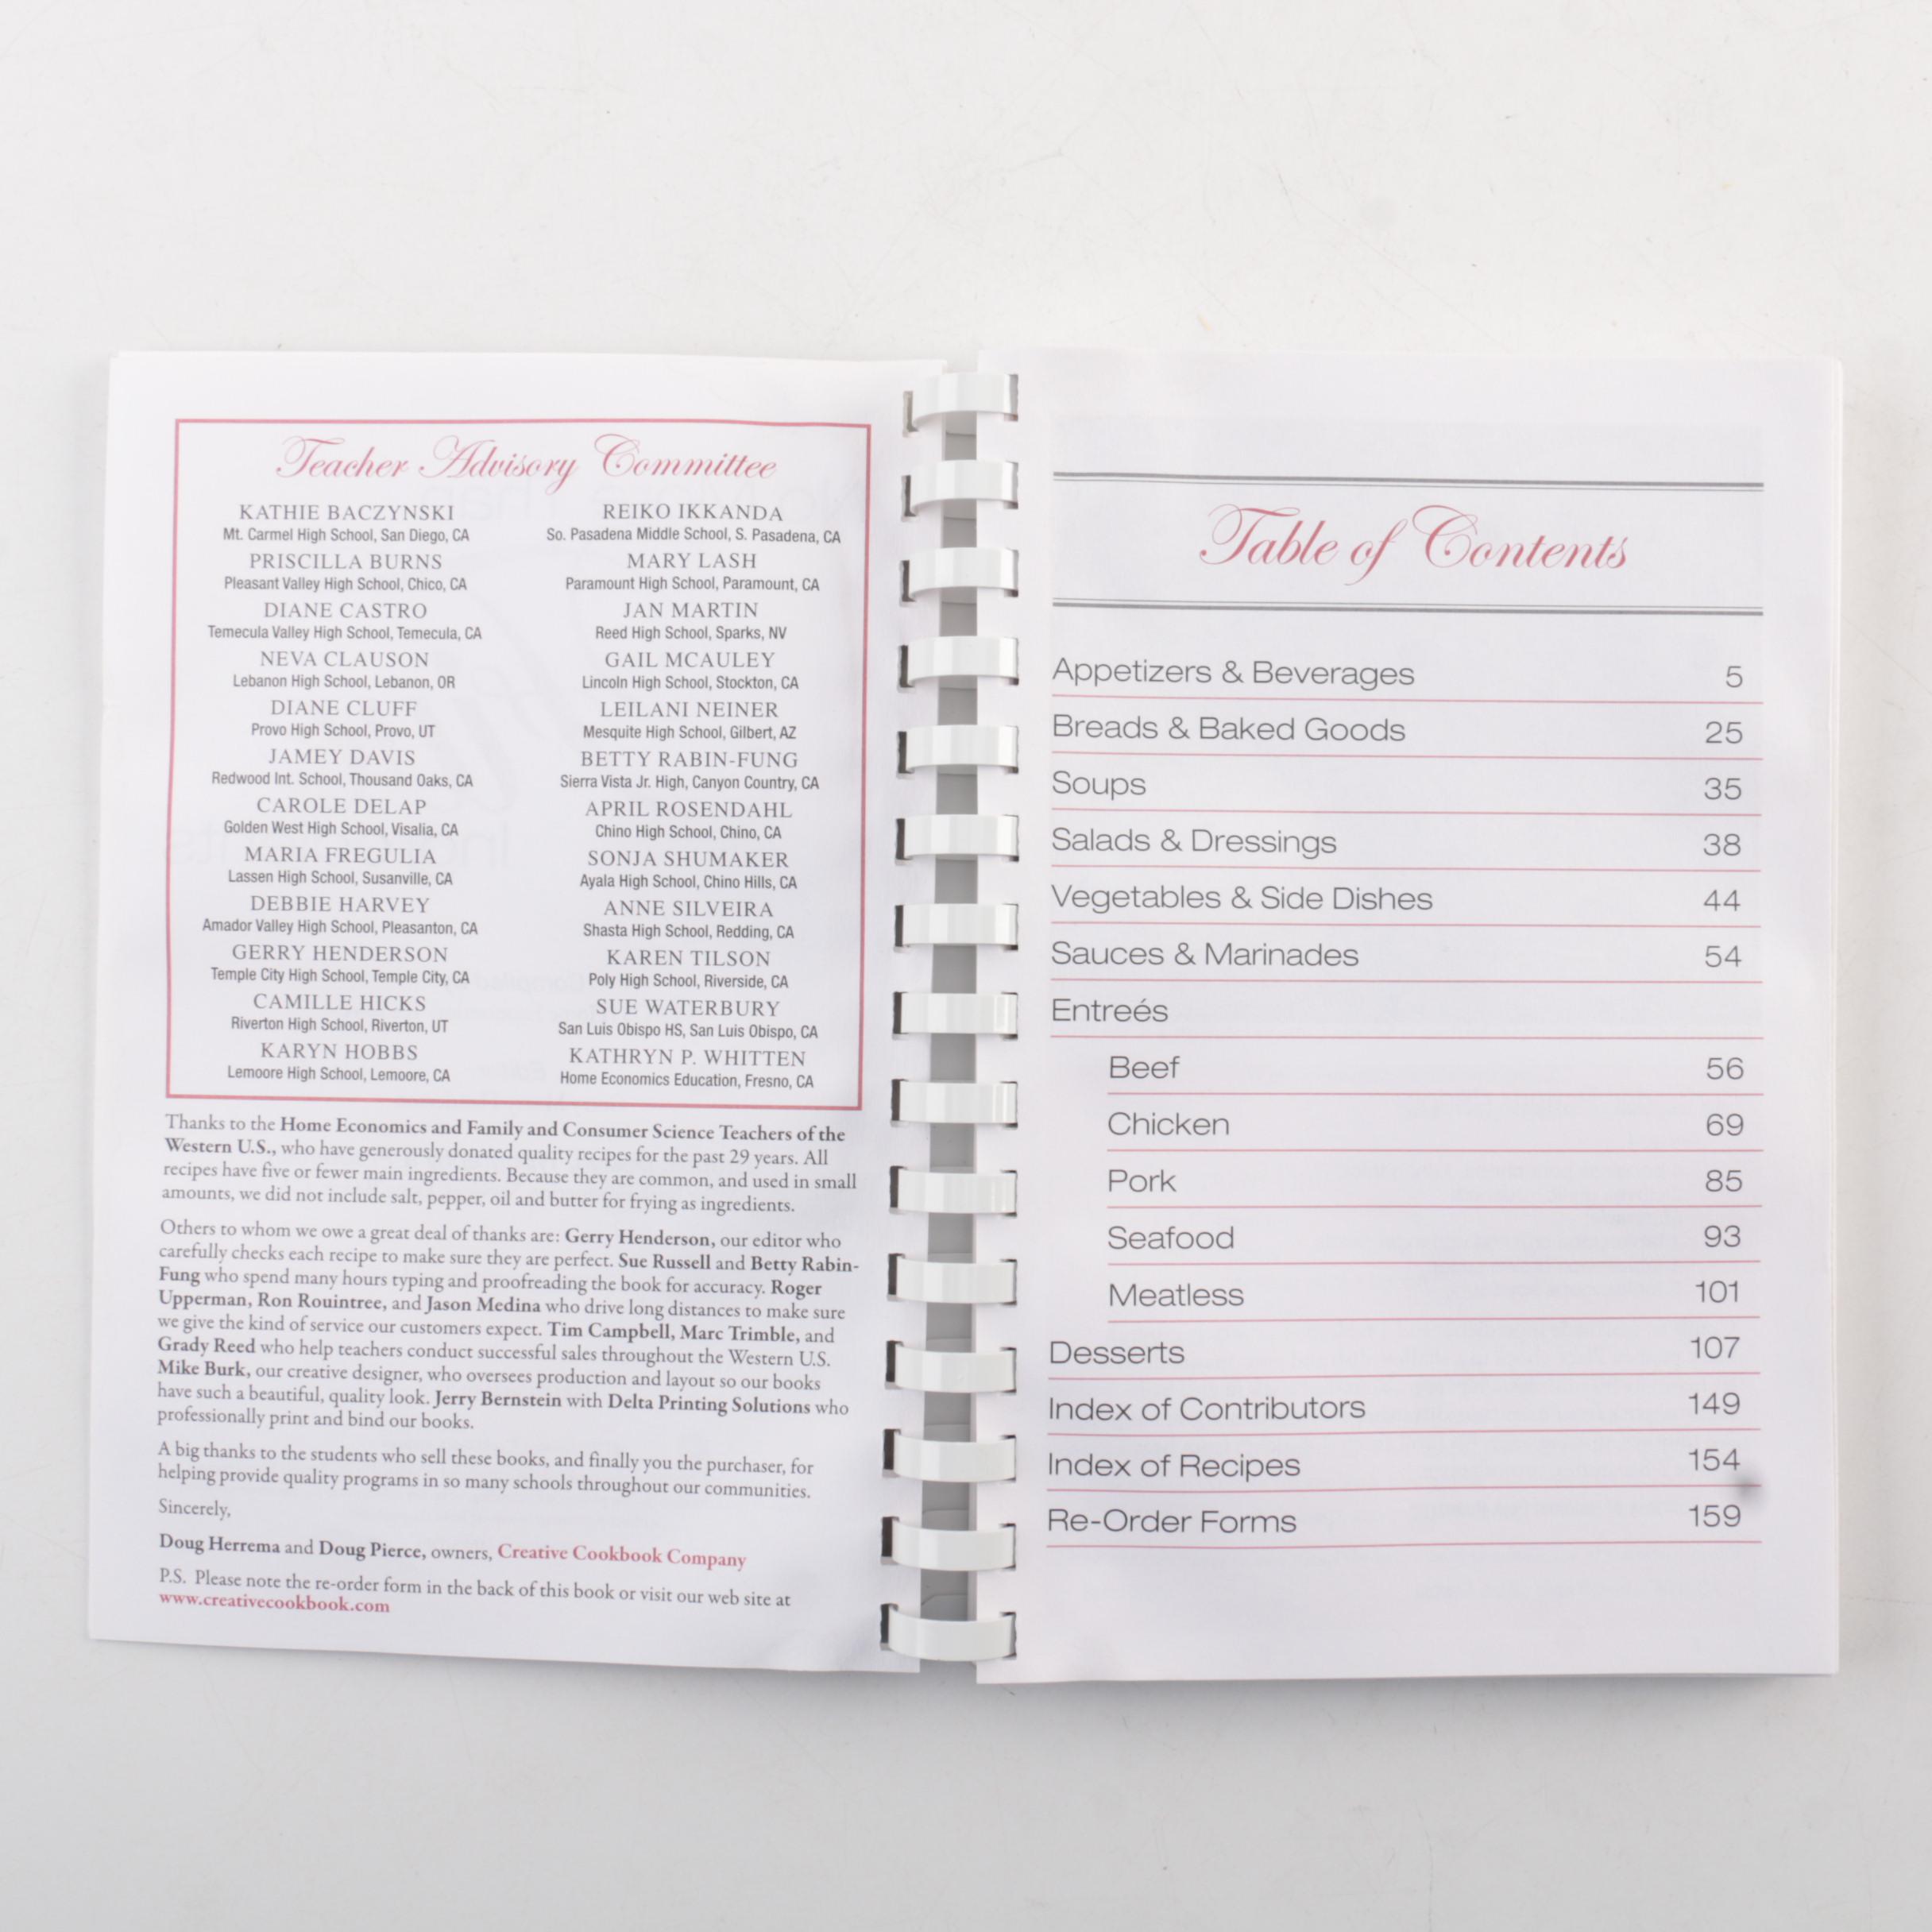 Teacher Advisory Committee
KATHIE BACZYNSKI
Mt. Carmel High School, San Diego, CA
PRISCILLA BURNS
Pleasant Valley High School, Chico, CA
DIANE CASTRO
Temecula Valley High School, Temecula, CA
NEVA CLAUSON
Lebanon High School, Lebanon, OR
DIANE CLUFF
Provo High School, Provo, UT
JAMEY DAVIS
Redwood Int. School, Thousand Oaks, CA
CAROLE DELAP
Golden West High School, Visalia, CA
MARIA FREGULIA
Lassen High School, Susanville, CA
DEBBIE HARVEY
Amador Valley High School, Pleasanton, CA
GERRY HENDERSON
Temple City High School, Temple City, CA
CAMILLE HICKS
Riverton High School, Riverton, UT
KARYN HOBBS
Lemoore High School, Lemoore, CA
REIKO IKKANDA
So. Pasadena Middle School, S. Pasadena, CA
MARY LASH
Paramount High School, Paramount, CA
JAN MARTIN
Reed High School, Sparks, NV
GAIL MCAULEY
Lincoln High School, Stockton, CA
LEILANI NEINER
Mesquite High School, Gilbert, AZ
BETTY RABIN-FUNG
Sierra Vista Jr. High, Canyon Country, CA
APRIL ROSENDAHL
Chino High School, Chino, CA
SONJA SHUMAKER
Ayala High School, Chino Hills, CA
ANNE SILVEIRA
Shasta High School, Redding, CA
KAREN TILSON
Poly High School, Riverside, CA
SUE WATERBURY
San Luis Obispo HS, San Luis Obispo, CA
KATHRYN P. WHITTEN
Home Economics Education, Fresno, CA
Thanks to the Home Economics and Family and Consumer Science Teachers of the
Western U.S., who have generously donated quality recipes for the past 29 years. All
recipes have five or fewer main ingredients. Because they are common, and used in small
amounts, we did not include salt, pepper, oil and butter for frying as ingredients.
Others to whom we owe a great deal of thanks are: Gerry Henderson, our editor who
carefully checks each recipe to make sure they are perfect. Sue Russell and Betty Rabin-
Fung who spend many hours typing and proofreading the book for accuracy. Roger
Upperman, Ron Rouintree, and Jason Medina who drive long distances to make sure
we give the kind of service our customers expect. Tim Campbell, Marc Trimble, and
Grady Reed who help teachers conduct successful sales throughout the Western U.S.
Mike Burk, our creative designer, who oversees production and layout so our books
have such a beautiful, quality look. Jerry Bernstein with Delta Printing Solutions who
professionally print and bind our books.
A big thanks to the students who sell these books, and finally you the purchaser, for
helping provide quality programs in so many schools throughout our communities.
Sincerely,
Doug Herrema and Doug Pierce, owners, Creative Cookbook Company
P.S. Please note the re-order form in the back of this book or visit our web site at
www.creativecookbook.com
Table of Contents
Appetizers & Beverages 5
Breads & Baked Goods 25
Soups 35
Salads & Dressings 38
Vegetables & Side Dishes 44
Sauces & Marinades 54
Entreés
Beef 56
Chicken 69
Pork 85
Seafood 93
Meatless 101
Desserts 107
Index of Contributors 149
Index of Recipes 154
Re-Order Forms 159